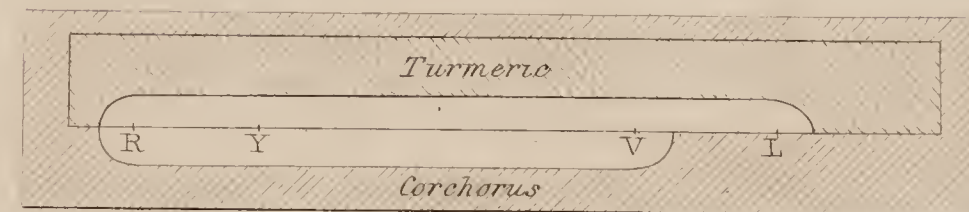 Turmeric
R Y V L
Corchorus